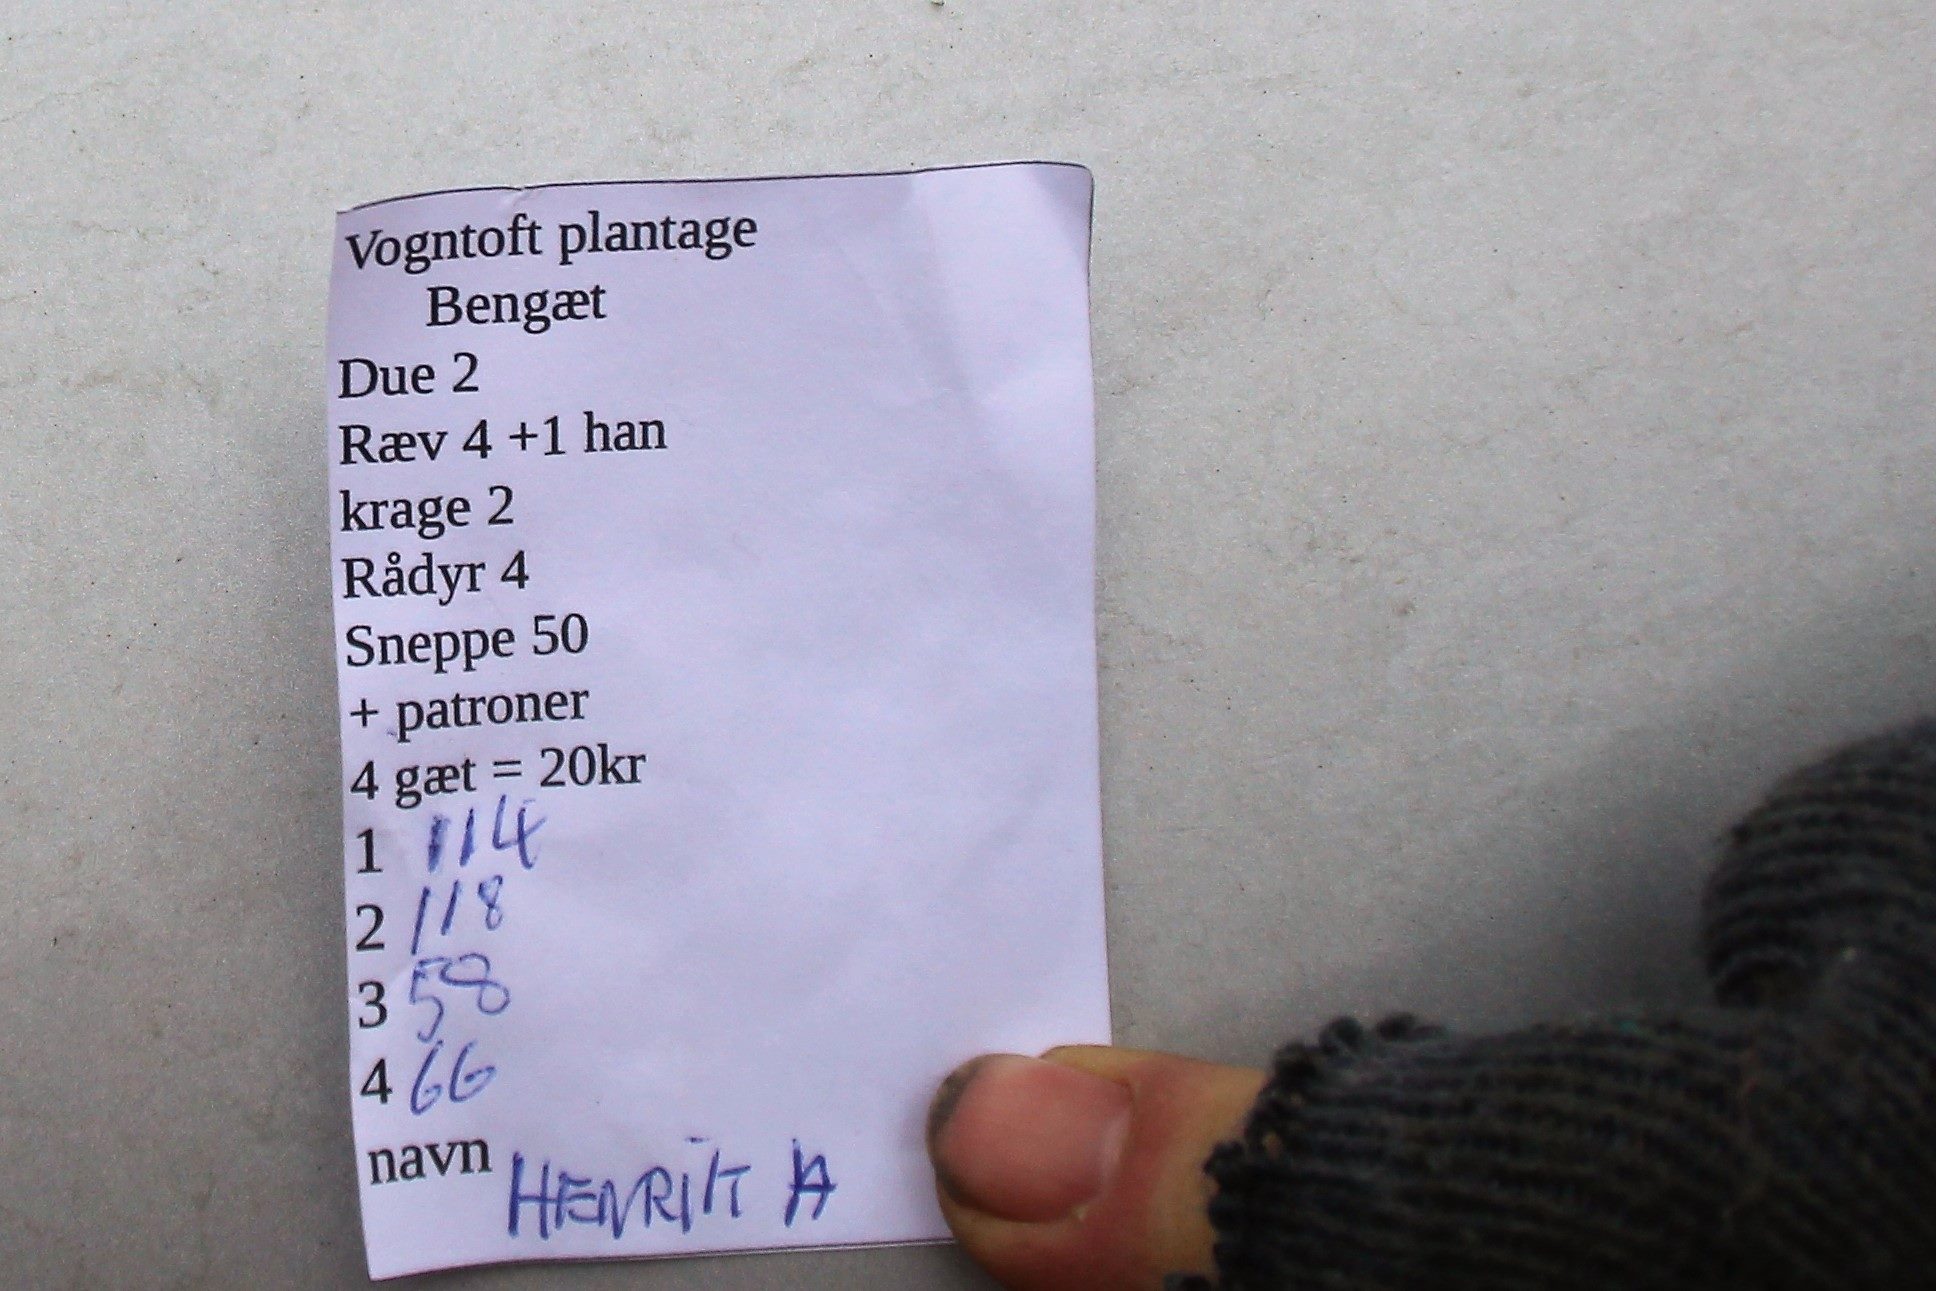 Vogntoft plantage
Bengæt
Due 2
Ræv 4 +1 han
krage 2
Rådyr 4
Sneppe 50
+ patroner
4 gæt = 20kr
1 114
2 118
3 58
4 66
navn HENRIK A